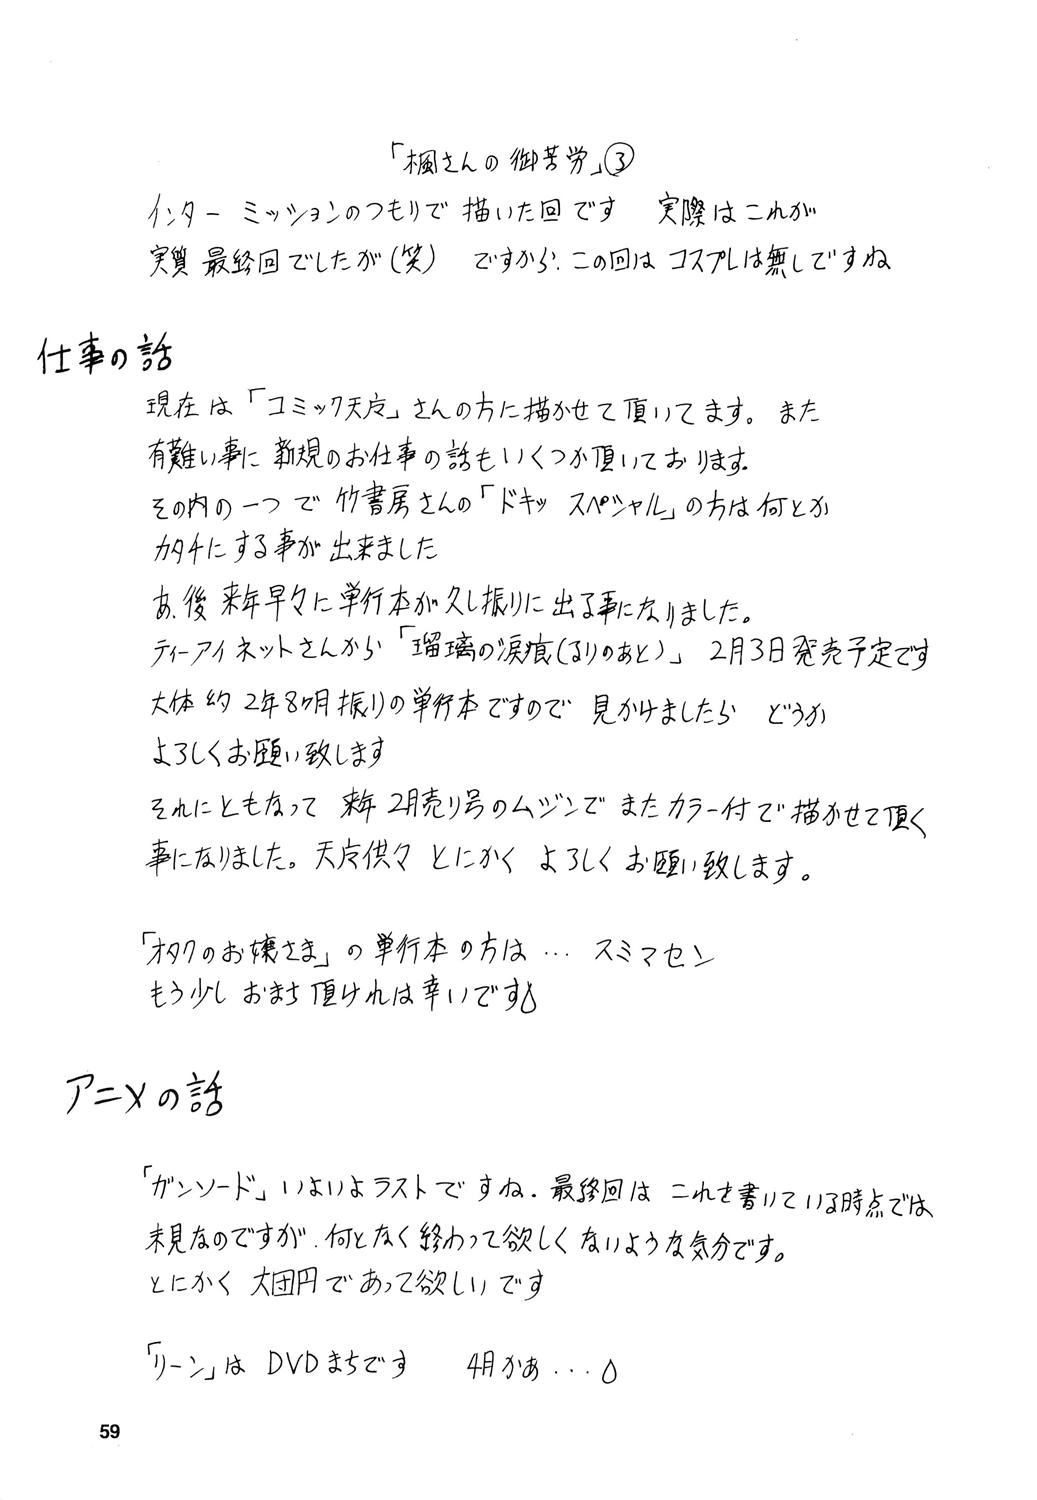 「楓さんの御苦労」③
インターミッションのつもりで 描いた回です　実際はこれが
実質 最終回でしたが(笑)　ですから、この回は コスプレは無しですね
仕事の話
現在は「コミック天魔」さんの方に描かせて頂いてます。また
有難い事に 新規のお仕事の話もいくつか頂いております。
その内の一つで 竹書房さんの「ドキッ スペシャル」の方は何とか
カタチにする事が 出来ました
あ、後 来年早々に 単行本が久し振りに 出る事になりました。
ティーアイネットさんから「瑠璃の涙痕(るりのあと)」 2月3日発売予定です
大体 約 2年8ヶ月振りの単行本ですので 見かけましたら どうか
よろしくお願い致します
それにともなって 来年 2月売り号のムジンで またカラー付で描かせて頂く
事になりました。天魔供々 とにかく よろしくお願い致します。
「オタクのお嬢さま」の 単行本の方は… スミマセン
もう少し おまち頂ければ幸いです
アニメの話
「ガンソード」いよいよラストですね。最終回は これを書いている時点では
未見なのですが、何となく終わって欲しくないような気分です。
とにかく 大団円であって欲しいです
「リーン」は DVDまちです　4月かあ...
59